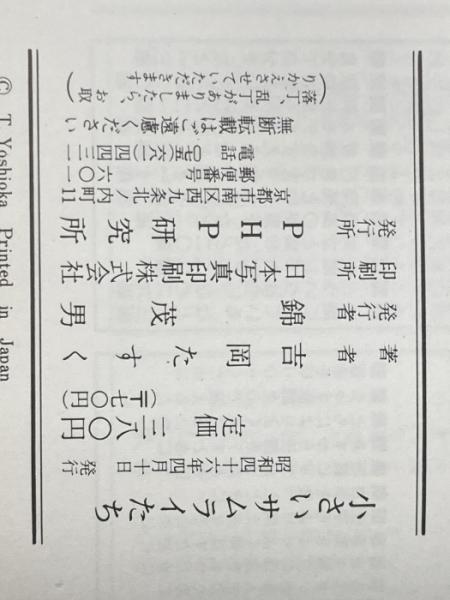 小さいサムライたち
昭和四十六年四月十日 発行
定価 三八〇円
(〒七〇円)
著者 吉岡たすく
発行者 錦茂男
印刷所 日本写真印刷株式会社
発行所 PHP研究所
京都市南区西九条北ノ内町11
郵便番号 六〇一
電話 〇七五(六八一)四四三一
無断転載はご遠慮ください
(落丁、乱丁がありましたら、お取
りかえさせていただきます)
© T. Yoshioka Printed in Japan